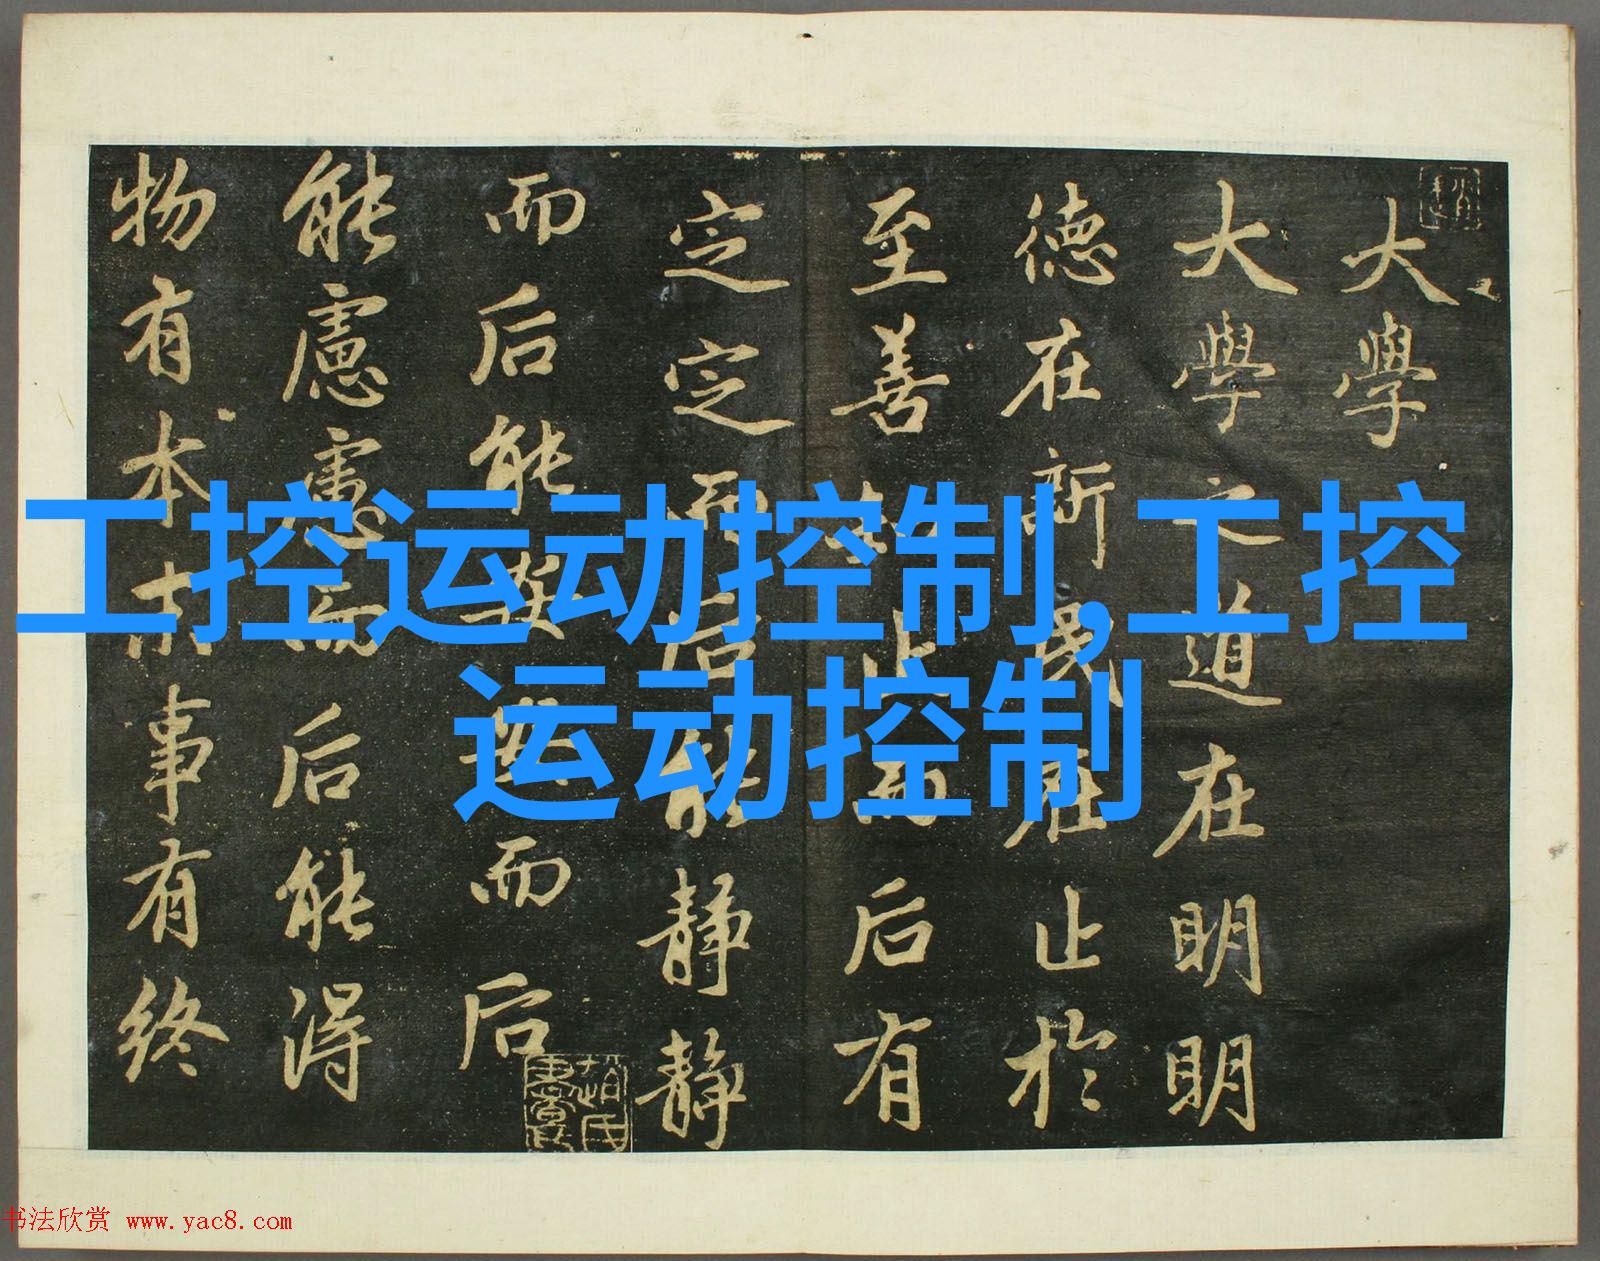 工控运动控制,工控
运动控制
大學
大學之道在明明
德在新民在止於
至善知止而后有
定定而后能静静
而后能安安而后
能慮慮而后能得
物有本末事有終
书法欣赏 www.yac8.com